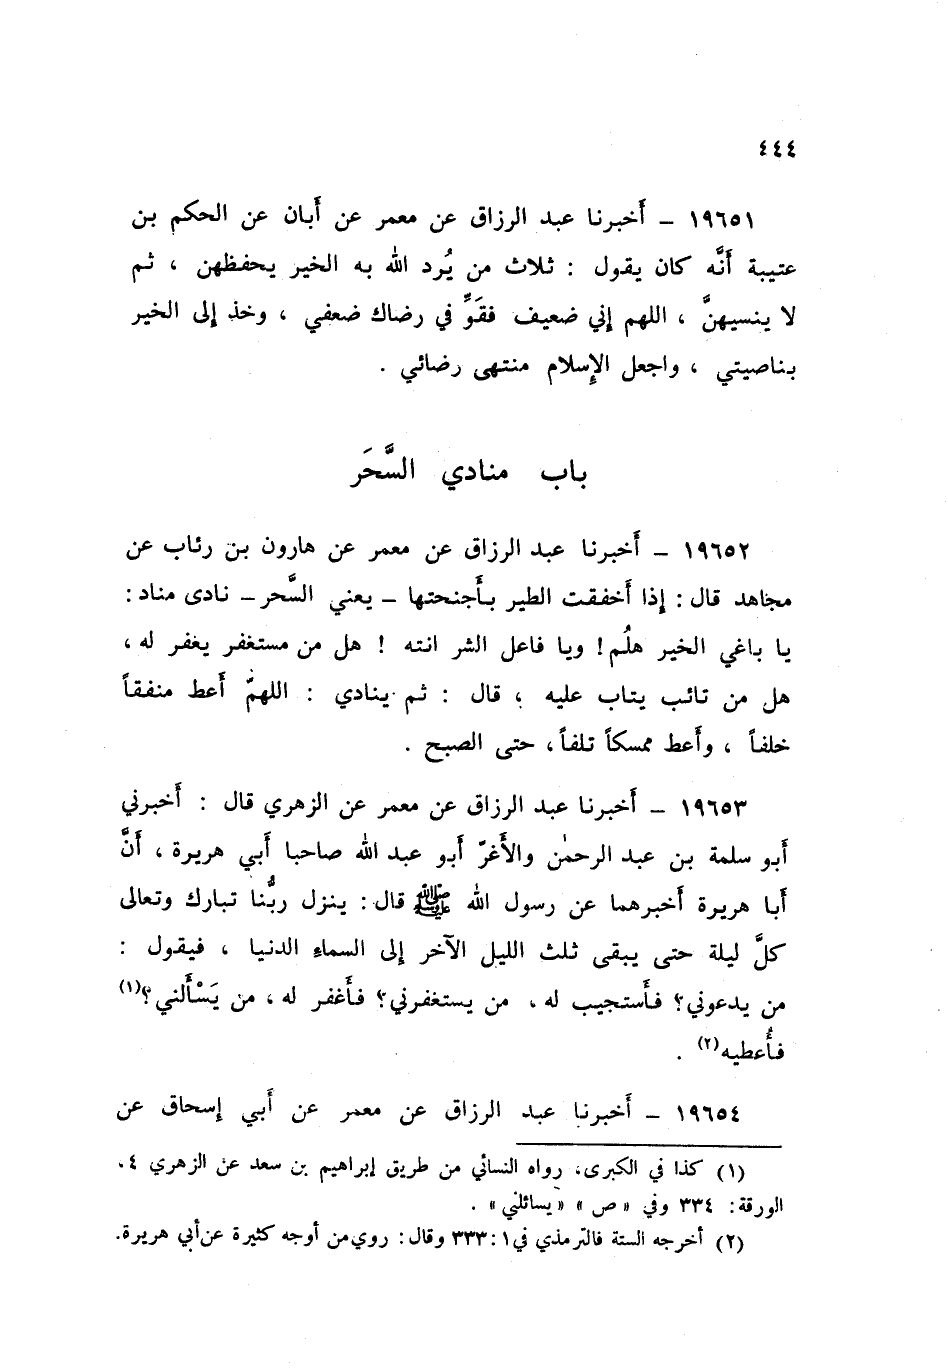 ٤٤٤
١٩٦٥١ ــ أَخبرنا عبد الرزاق عن معمر عن أَبان عن الحكم بن
عتيبة أَنَّه كان يقول : ثلاث من يُرد الله به الخير يحفظهن ، ثم
لا ينسيهنَّ ، اللهم إني ضعيف فقوِّ في رضاك ضعفي ، وخذ إلى الخير
بناصيتي ، واجعل الإسلام منتهى رضائي .
باب منادي السَّحَر
١٩٦٥٢ ــ أَخبرنا عبد الرزاق عن معمر عن هارون بن رئاب عن
مجاهد قال : إذا أَخفقت الطير بأَجنحتها ــ يعني السَّحر ــ نادى مناد :
يا باغي الخير هلُم ! ويا فاعل الشر انته ! هل من مستغفر يغفر له ،
هل من تائب يتاب عليه ، قال : ثم ينادي : اللهمّ أَعط منفقاً
خلفاً ، وأَعط ممسكاً تلفاً ، حتى الصبح .
١٩٦٥٣ ــ أَخبرنا عبد الرزاق عن معمر عن الزهري قال : أَخبرني
أَبو سلمة بن عبد الرحمٰن والأَغرّ أَبو عبد الله صاحبا أَبي هريرة ، أَنَّ
أَبا هريرة أَخبرهما عن رسول الله ﷺ قال : ينزل ربُّنا تبارك وتعالى
كلَّ ليلة حتى يبقى ثلث الليل الآخر إلى السماء الدنيا ، فيقول :
من يدعوني ؟ فأَستجيب له ، من يستغفرني ؟ فأَغفر له ، من يَسْأَلني ؟(١)
فأُعطيه(٢) .
١٩٦٥٤ ــ أَخبرنا عبد الرزاق عن معمر عن أَبي إسحاق عن
(١) كذا في الكبرى، رواه النسائي من طريق إبراهيم بن سعد عن الزهري ٤،
الورقة: ٣٣٤ وفي « ص » « يسائلني » .
(٢) أخرجه الستة فالترمذي في ١ : ٣٣٣ وقال : روي من أوجه كثيرة عن أبي هريرة.